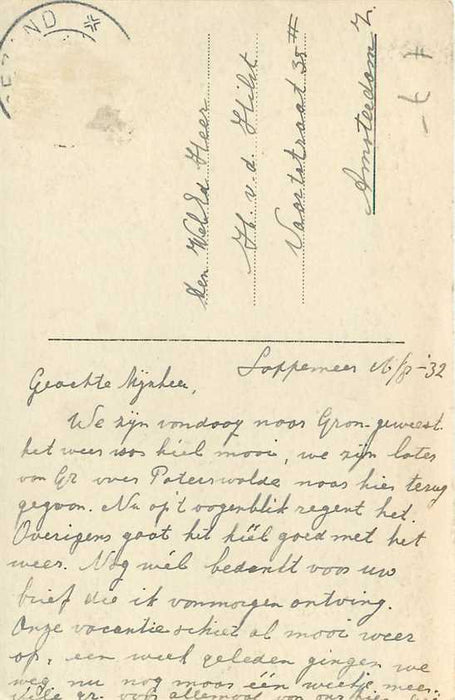 Den WelEd. Heer
H. v. d. Hilst
Vaartstraat 38 II
Amsterdam Z.
Sappemeer '32
Geachte Mijnheer,
We zijn vandaag naar Gron. geweest.
het weer was hiel mooi, we zijn later
van Gr over Paterswolde naar hier terug
gegaan. Nu op 't oogenblik regent het.
Overigens gaat hit hiël goed met het
weer. Nog wél bedankt voor uw
brief die ik vanmorgen ontving.
Onze vacantie schiet al mooi weer
op, een week geleden gingen we
weg nu nog maar één weekje meer.
Vele gr. voor allemaal van ons